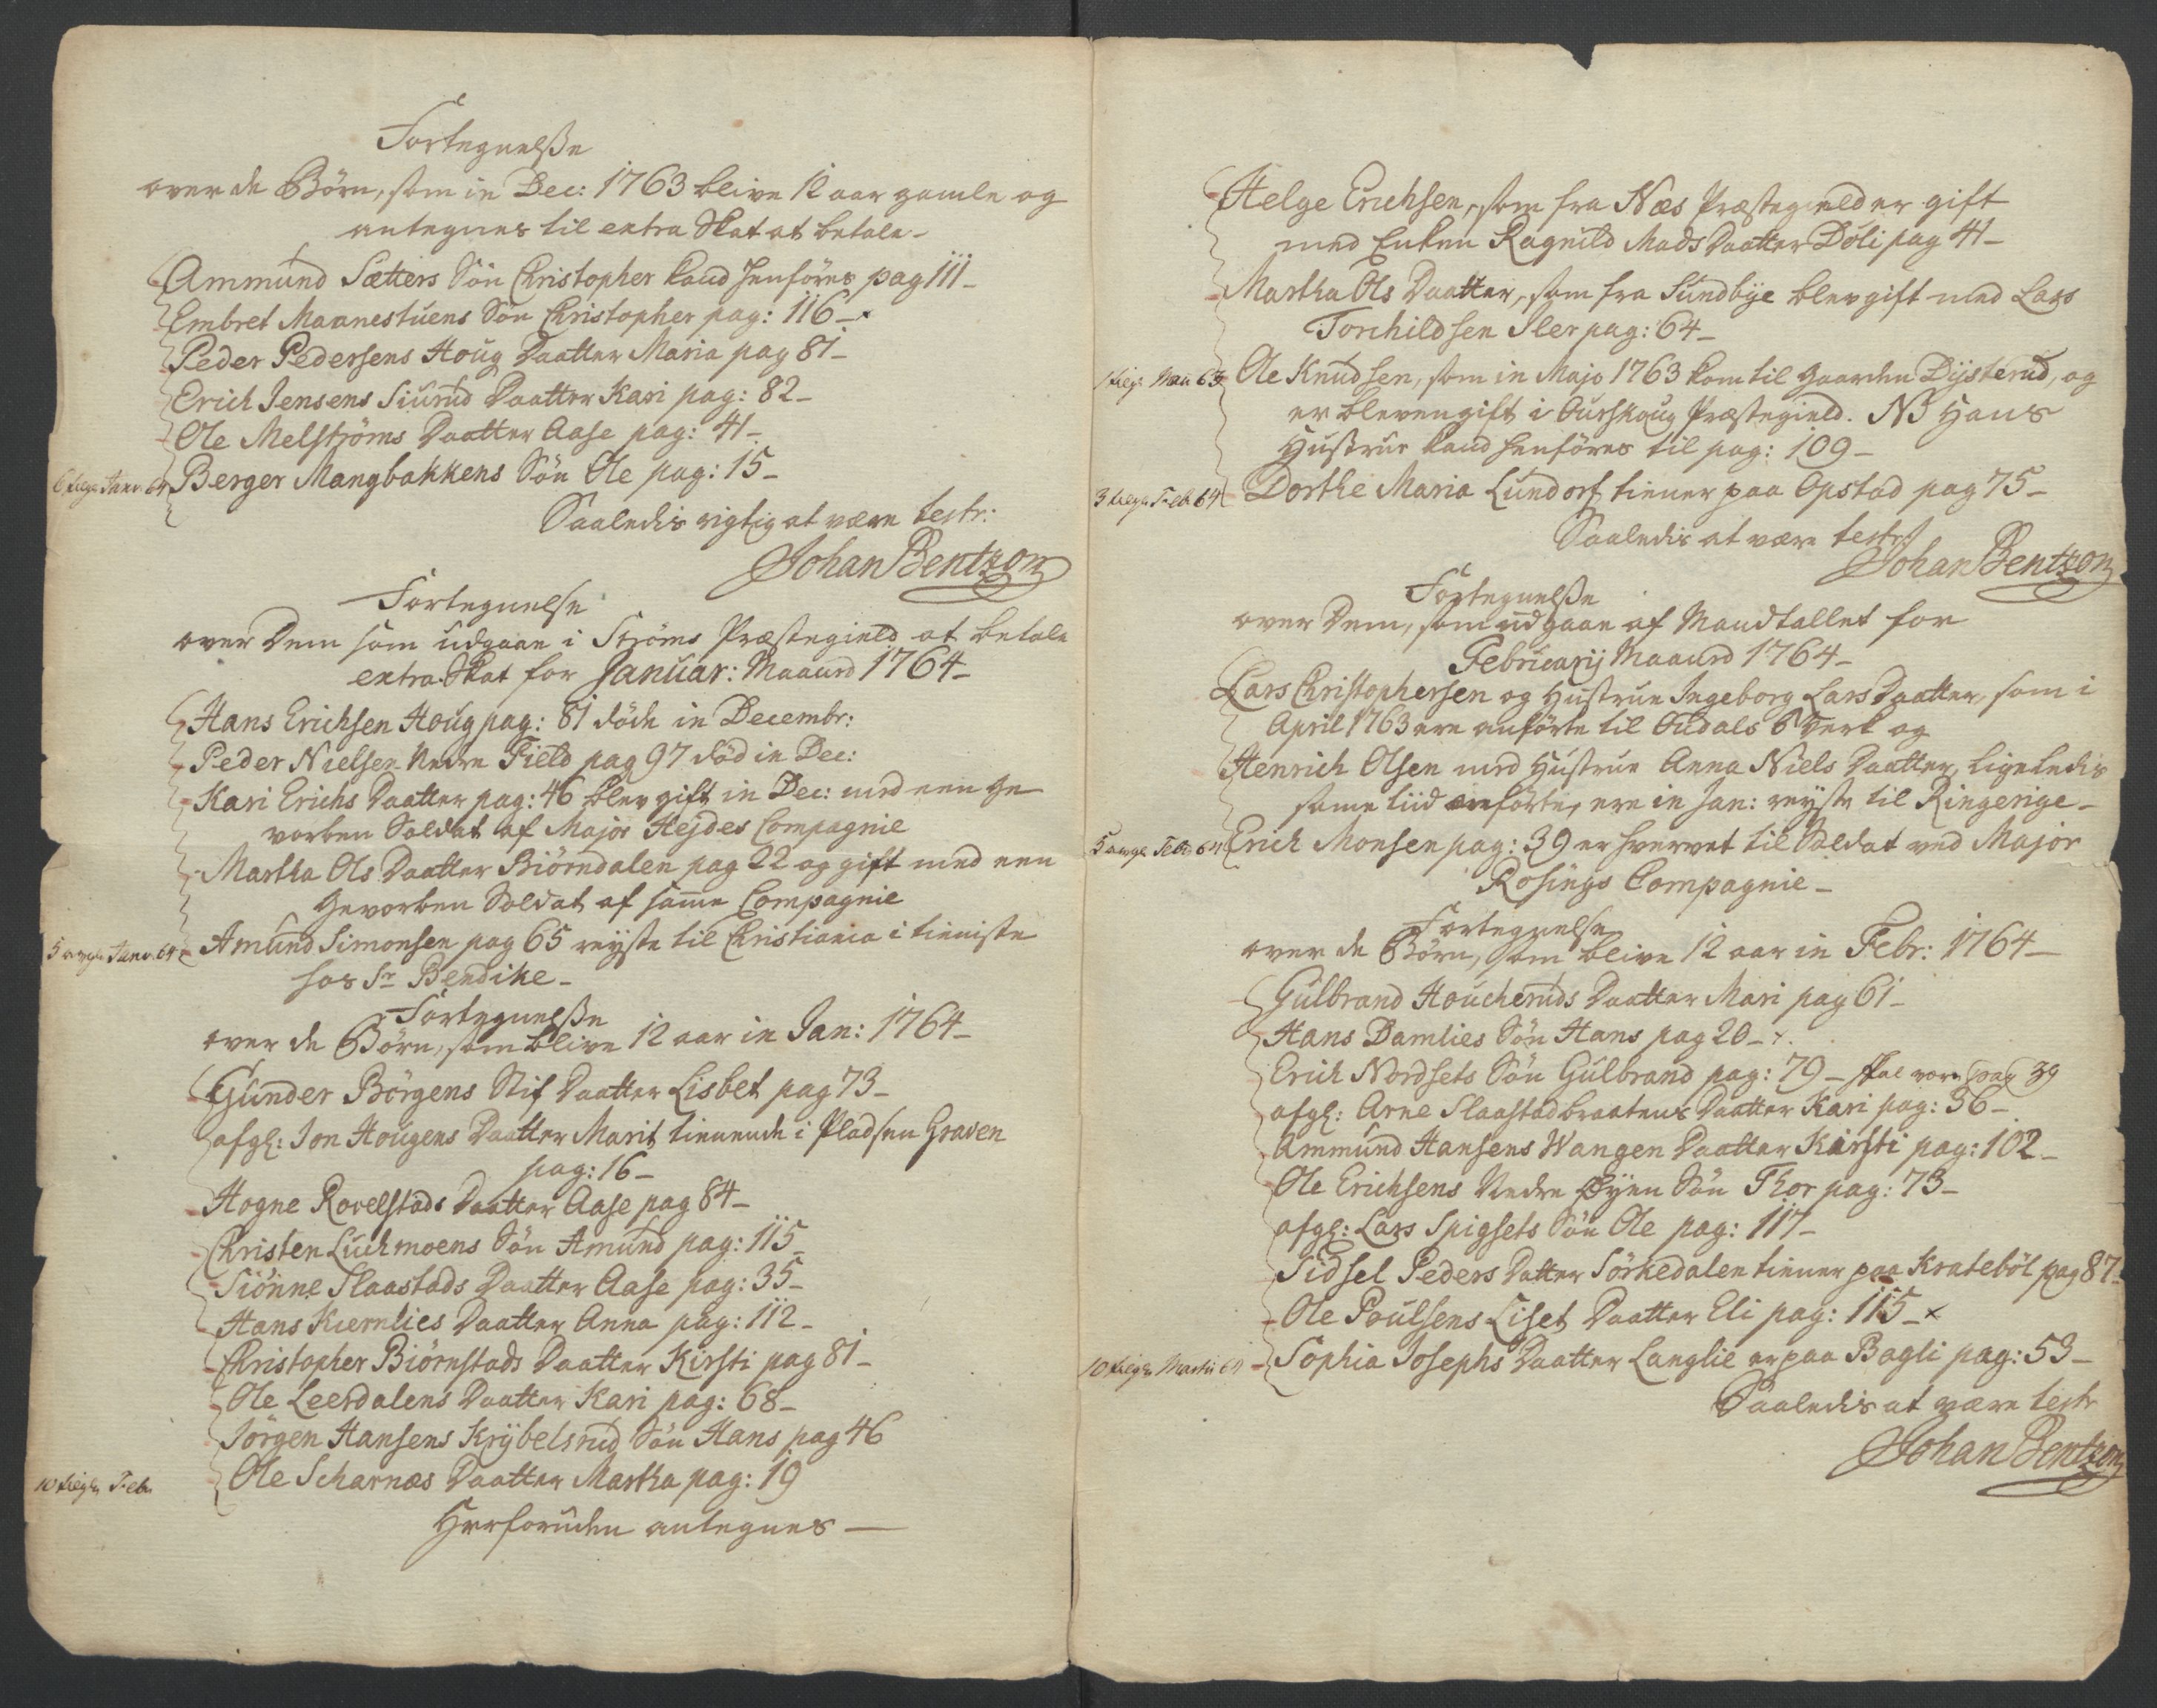 Fortegnelsse
over de Börn, som in Dec: 1763 blive 12 aar gamle og
antegnes til extra Skat at betale-
Ammund Sætters Sön Christopher kand henföres pag 111-
Embret Maanestuens Sön Christopher pag: 116-
Peder Pedersens Houg Daatter Maria pag 81-
Erich Jensens Siurud Daatter Kari pag: 82-
Ole Melströms Daatter Aase pag: 41-
6 tilg: Janv. 64 Berger Mangbakkens Sön Ole pag: 15-
Saaledis rigtig at være test:
Johan Bentzon
Fortegnelse
over Dem som udgaae i Ströms Præstegield at betale
extra Skat for Januar: Maaned 1764-
Hans Erichsen Houg pag: 81 döde in Decembr:
Peder Nielsen Nedre Field pag 97 död in Dec:
Kari Erichs Daatter pag: 46 blev gift in Dec: med een ge
vorben Soldat af Major Hejdes Compagnie
Martha Ols Daatter Biörndalen pag 22 og gift med een
Gevorben Soldat af samme Compagnie
5 afg: Janv. 64 Amund Simonsen pag 65 reyste til Christiania i tieniste
hos Sr Bendike-
Fortegnelsse
over de Börn, som blive 12 aar in Jan: 1764-
Gunder Börgens Stif Daatter Lisbet pag 73-
afgl: Jon Hougens Daatter Marit tienende i Pladsen Graven
pag: 16-
Hogne Rovelstads Daatter Aase pag 84-
Christen Luchmoens Sön Amund pag: 115-
Siönne Slaastads Daatter Aase pag: 35-
Hans Kiernlies Daatter Anna pag: 112-
Christopher Biörnstads Daatter Kirsti pag 81-
Ole Leerdalens Daatter Kari pag: 68-
Jörgen Hansens Krybelsrud Sön Hans pag 46
10 tilg: Feb. Ole Scharnæs Daatter Martha pag: 19
Herforuden antegnes —
Helge Erichsen, som fra Næs Præstegield er gift
med Enken Ragnild Mads Daatter Döli pag 41-
Martha Ols Daatter, som fra Sundbye blev gift med Lars
Torchildsen Sler pag: 64-
1 tilg: Maii 63 Ole Knudsen, som in Majo 1763 kom til gaarden Dysterud, og
er bleven gift i Ourskoug Præstegield. NB Hans
Hustrue kand henföres til pag: 109-
3 tilg: Feb 64 Dorthe Maria Lundorf tiener paa Opstad pag 75-
Saaledis at være test:
Johan Bentzon
Fortegnelsse
over Dem, som udgaae af Mandtallet for
Februarij Maaned 1764-
Lars Christophersen og Hustrue Ingeborg Lars Daatter, som i
April 1763 ere anförte til Oudals Verk og
Henrich Olsen med Hustrue Anna Niels Daatter, ligeledis
same tiid anförte, ere in Jan: reyste til Ringerige-
5 afg: Feb. 64 Erich Monsen pag: 39 er hvervet til Soldat ved Major
Rosings Compagnie-
Fortegnelse
over de Börn, som blive 12 aar in Febr: 1764-
Gulbrand Houcheruds Daatter Mari pag 61-
Hans Damlies Sön Hans pag 20-
Erich Nordsets Sön Gulbrand pag: 79- skal være pag 39
afgl: Arne Slaastadbraatens Daatter Kari pag: 36-
Ammund Hansens Wangen Daatter Kirsti pag: 102-
Ole Erichsens Nedre Øyen Sön Thor pag: 73-
afgl: Lars Spigsets Sön Ole pag: 117-
Sidsel Peders Datter Sörkedalen tiener paa Krateböl pag 87-
Ole Poulsens Liset Daatter Eli pag: 115-x
10 tilg: Martii 64 Sophia Josephs Daatter Langlie er paa Bagli pag: 53-
Saaledis at være test
Johan Bentzon